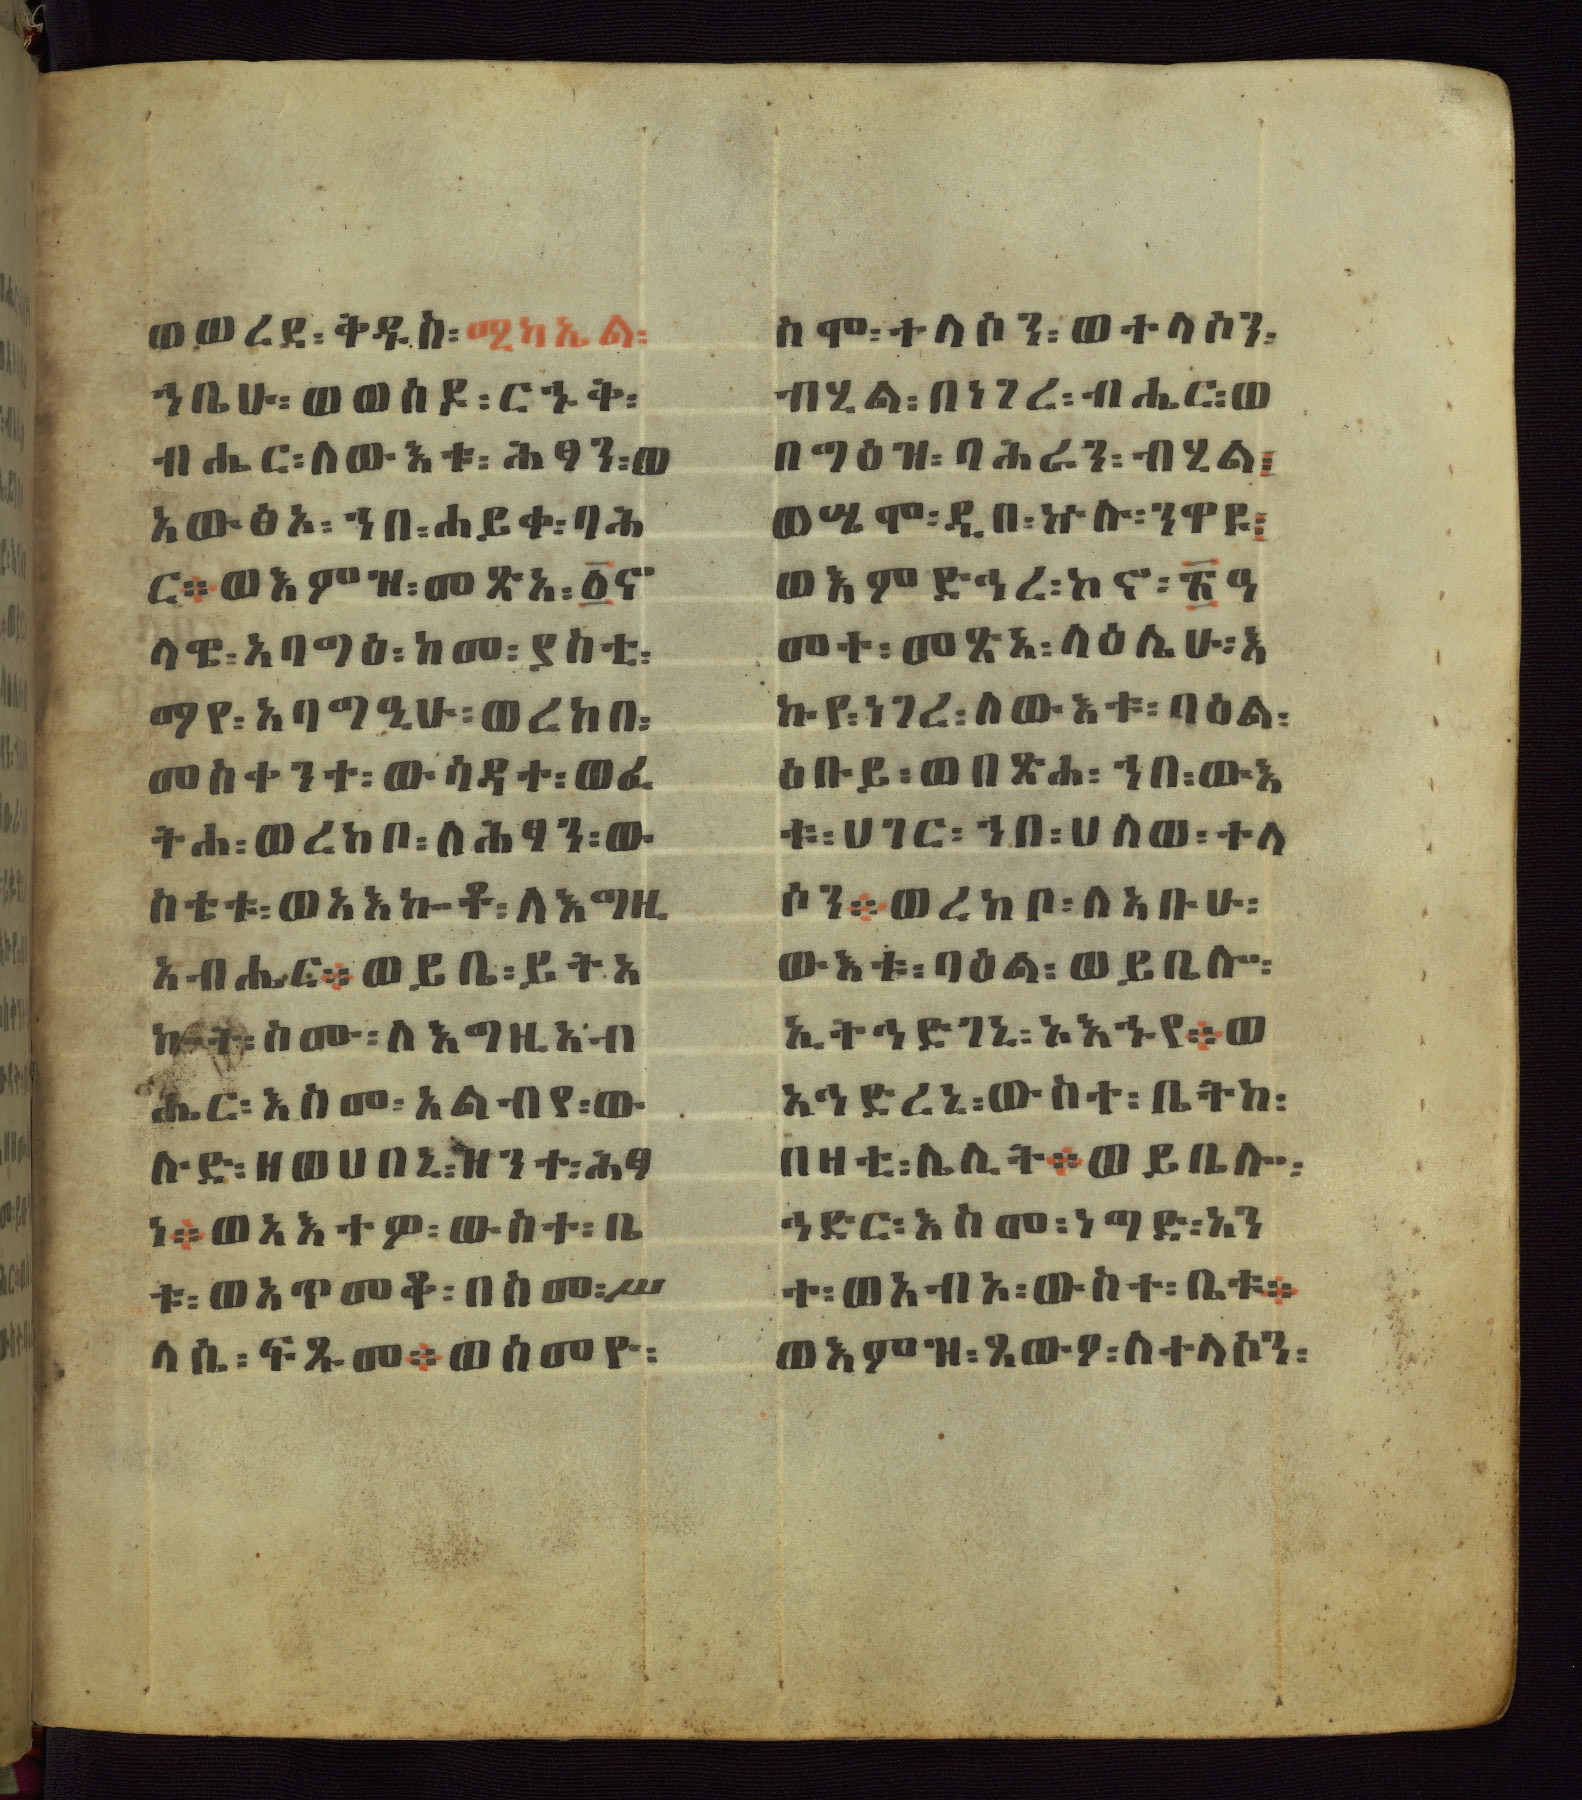 ወወረደ፡ ቅዱስ፡ ሚካኤል፡
ኀቤሁ፡ ወወሰዶ፡ ርኁቅ፡
ብሔር፡ ለውእቱ፡ ሕፃን፡ ወ
አውፅኦ፡ ኀበ፡ ሐይቀ፡ ባሕ
ር። ወእምዝ፡ መጽአ፡ ፩ኖ
ላዌ፡ አባግዕ፡ ከመ፡ ያስቲ፡
ማየ፡ አባግዒሁ፡ ወረከበ፡
መስተንተ፡ ውሳዳተ፡ ወፈ
ትሐ፡ ወረከቦ፡ ለሕፃን፡ ው
ስቴቱ፡ ወአእኰቶ፡ ለእግዚ
አብሔር። ወይቤ፡ ይትአ
ኰት፡ ስሙ፡ ለእግዚአብ
ሔር፡ እስመ፡ አልብየ፡ ው
ሉድ፡ ዘወሀበኒ፡ ዘንተ፡ ሕፃ
ነ። ወአእተዎ፡ ውስተ፡ ቤ
ቱ፡ ወአጥመቆ፡ በስመ፡ ሥ
ላሴ፡ ፍጹመ። ወሰመዮ፡
ስሞ፡ ተላሶን፡ ወተላሶን፡
ብሂል፡ በነገረ፡ ብሔር፡ ወ
በግዕዝ፡ ባሕራን፡ ብሂል፡
ወሤሞ፡ ዲበ፡ ኵሉ፡ ንዋዩ፡
ወእምድኅረ፡ ኮኖ፡ ፳ዓ
መተ፡ መጽአ፡ ላዕሌሁ፡ እ
ኩየ፡ ነገረ፡ ለውእቱ፡ ባዕል፡
ዕቡይ፡ ወበጽሐ፡ ኀበ፡ ውእ
ቱ፡ ሀገር፡ ኀበ፡ ሀለወ፡ ተላ
ሶን። ወረከቦ፡ ለአቡሁ፡
ውእቱ፡ ባዕል፡ ወይቤሎ፡
ኢትኅድገኒ፡ ኦእኁየ። ወ
አኅድረኒ፡ ውስተ፡ ቤትከ፡
በዛቲ፡ ሌሊት። ወይቤሎ፡
ኅድር፡ እስመ፡ ነግድ፡ አን
ተ፡ ወአብኦ፡ ውስተ፡ ቤቱ።
ወእምዝ፡ ጸውዖ፡ ለተላሶን፡